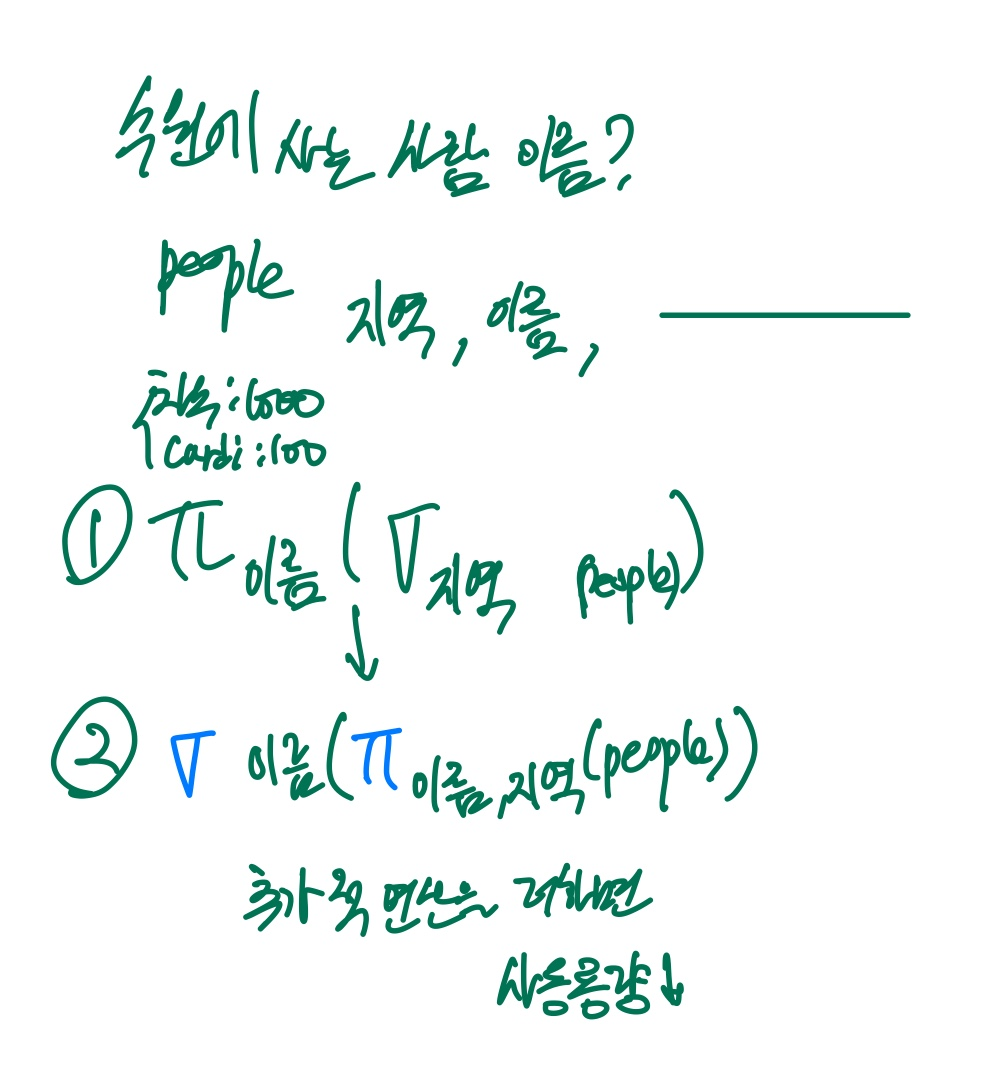 수원에 사는 사람 이름?
people 지역, 이름,
차수:1000
Cardi:100
① π 이름 ( σ 지역 (people) )
↓
② σ 이름(π 이름,지역(people))
추가적 연산을 더하면
사용용량↓